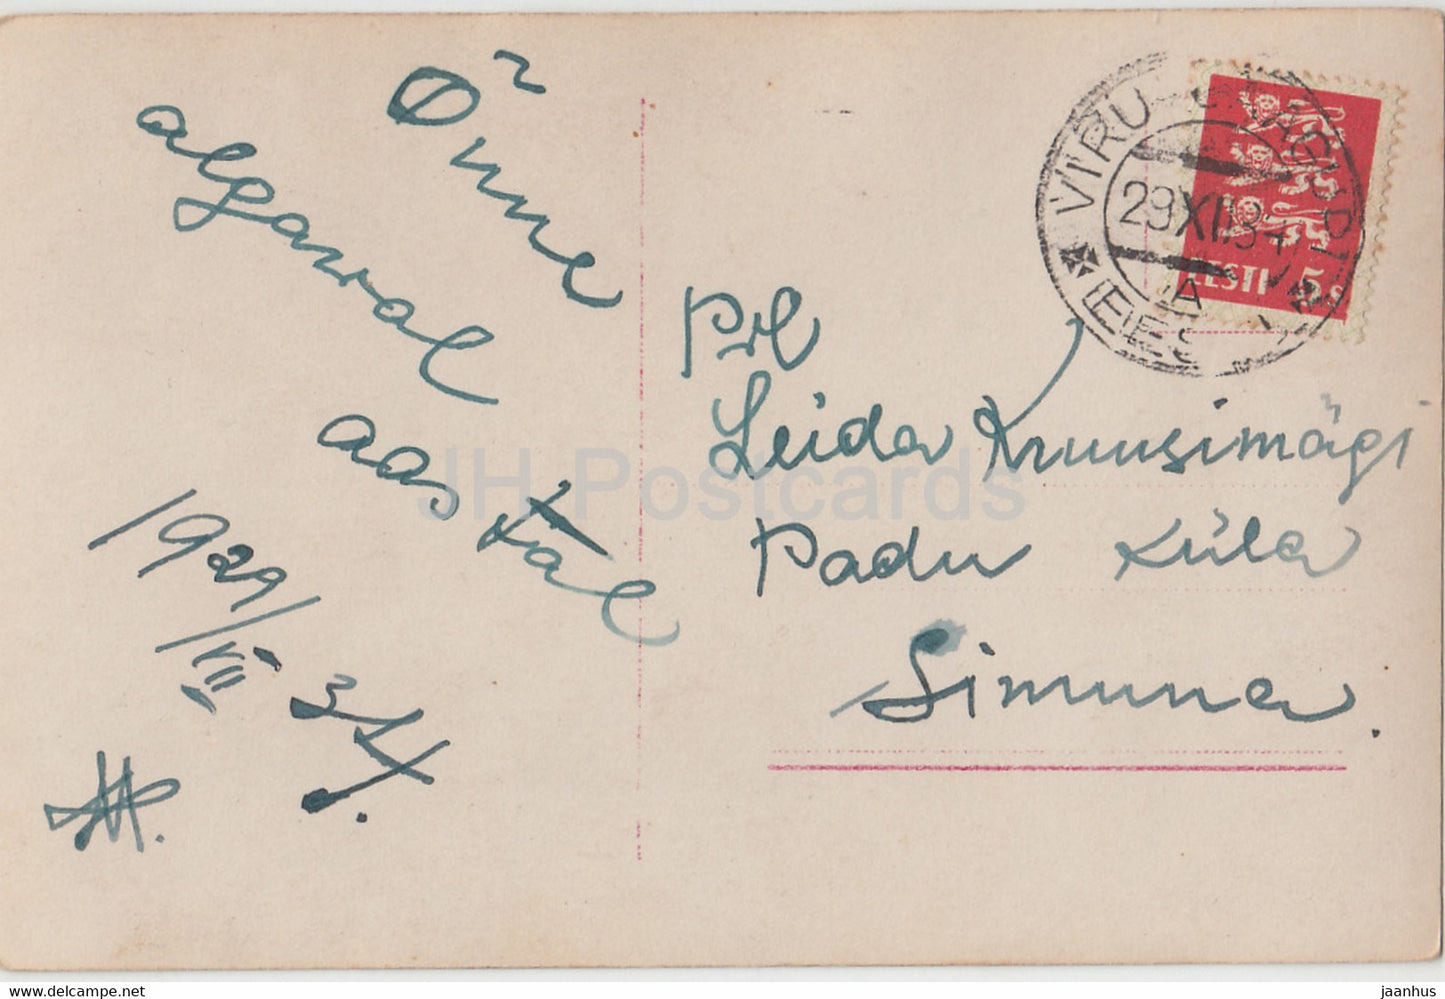 Õnne
algaval
aastal
VIRU-JAAGUPI
29 XII 34
A
EESTI
EESTI 5 s
Prl
Leida Kruusimägi
Padu küla
Simuna.
JH Postcards
www.delcampe.net
jaanhus